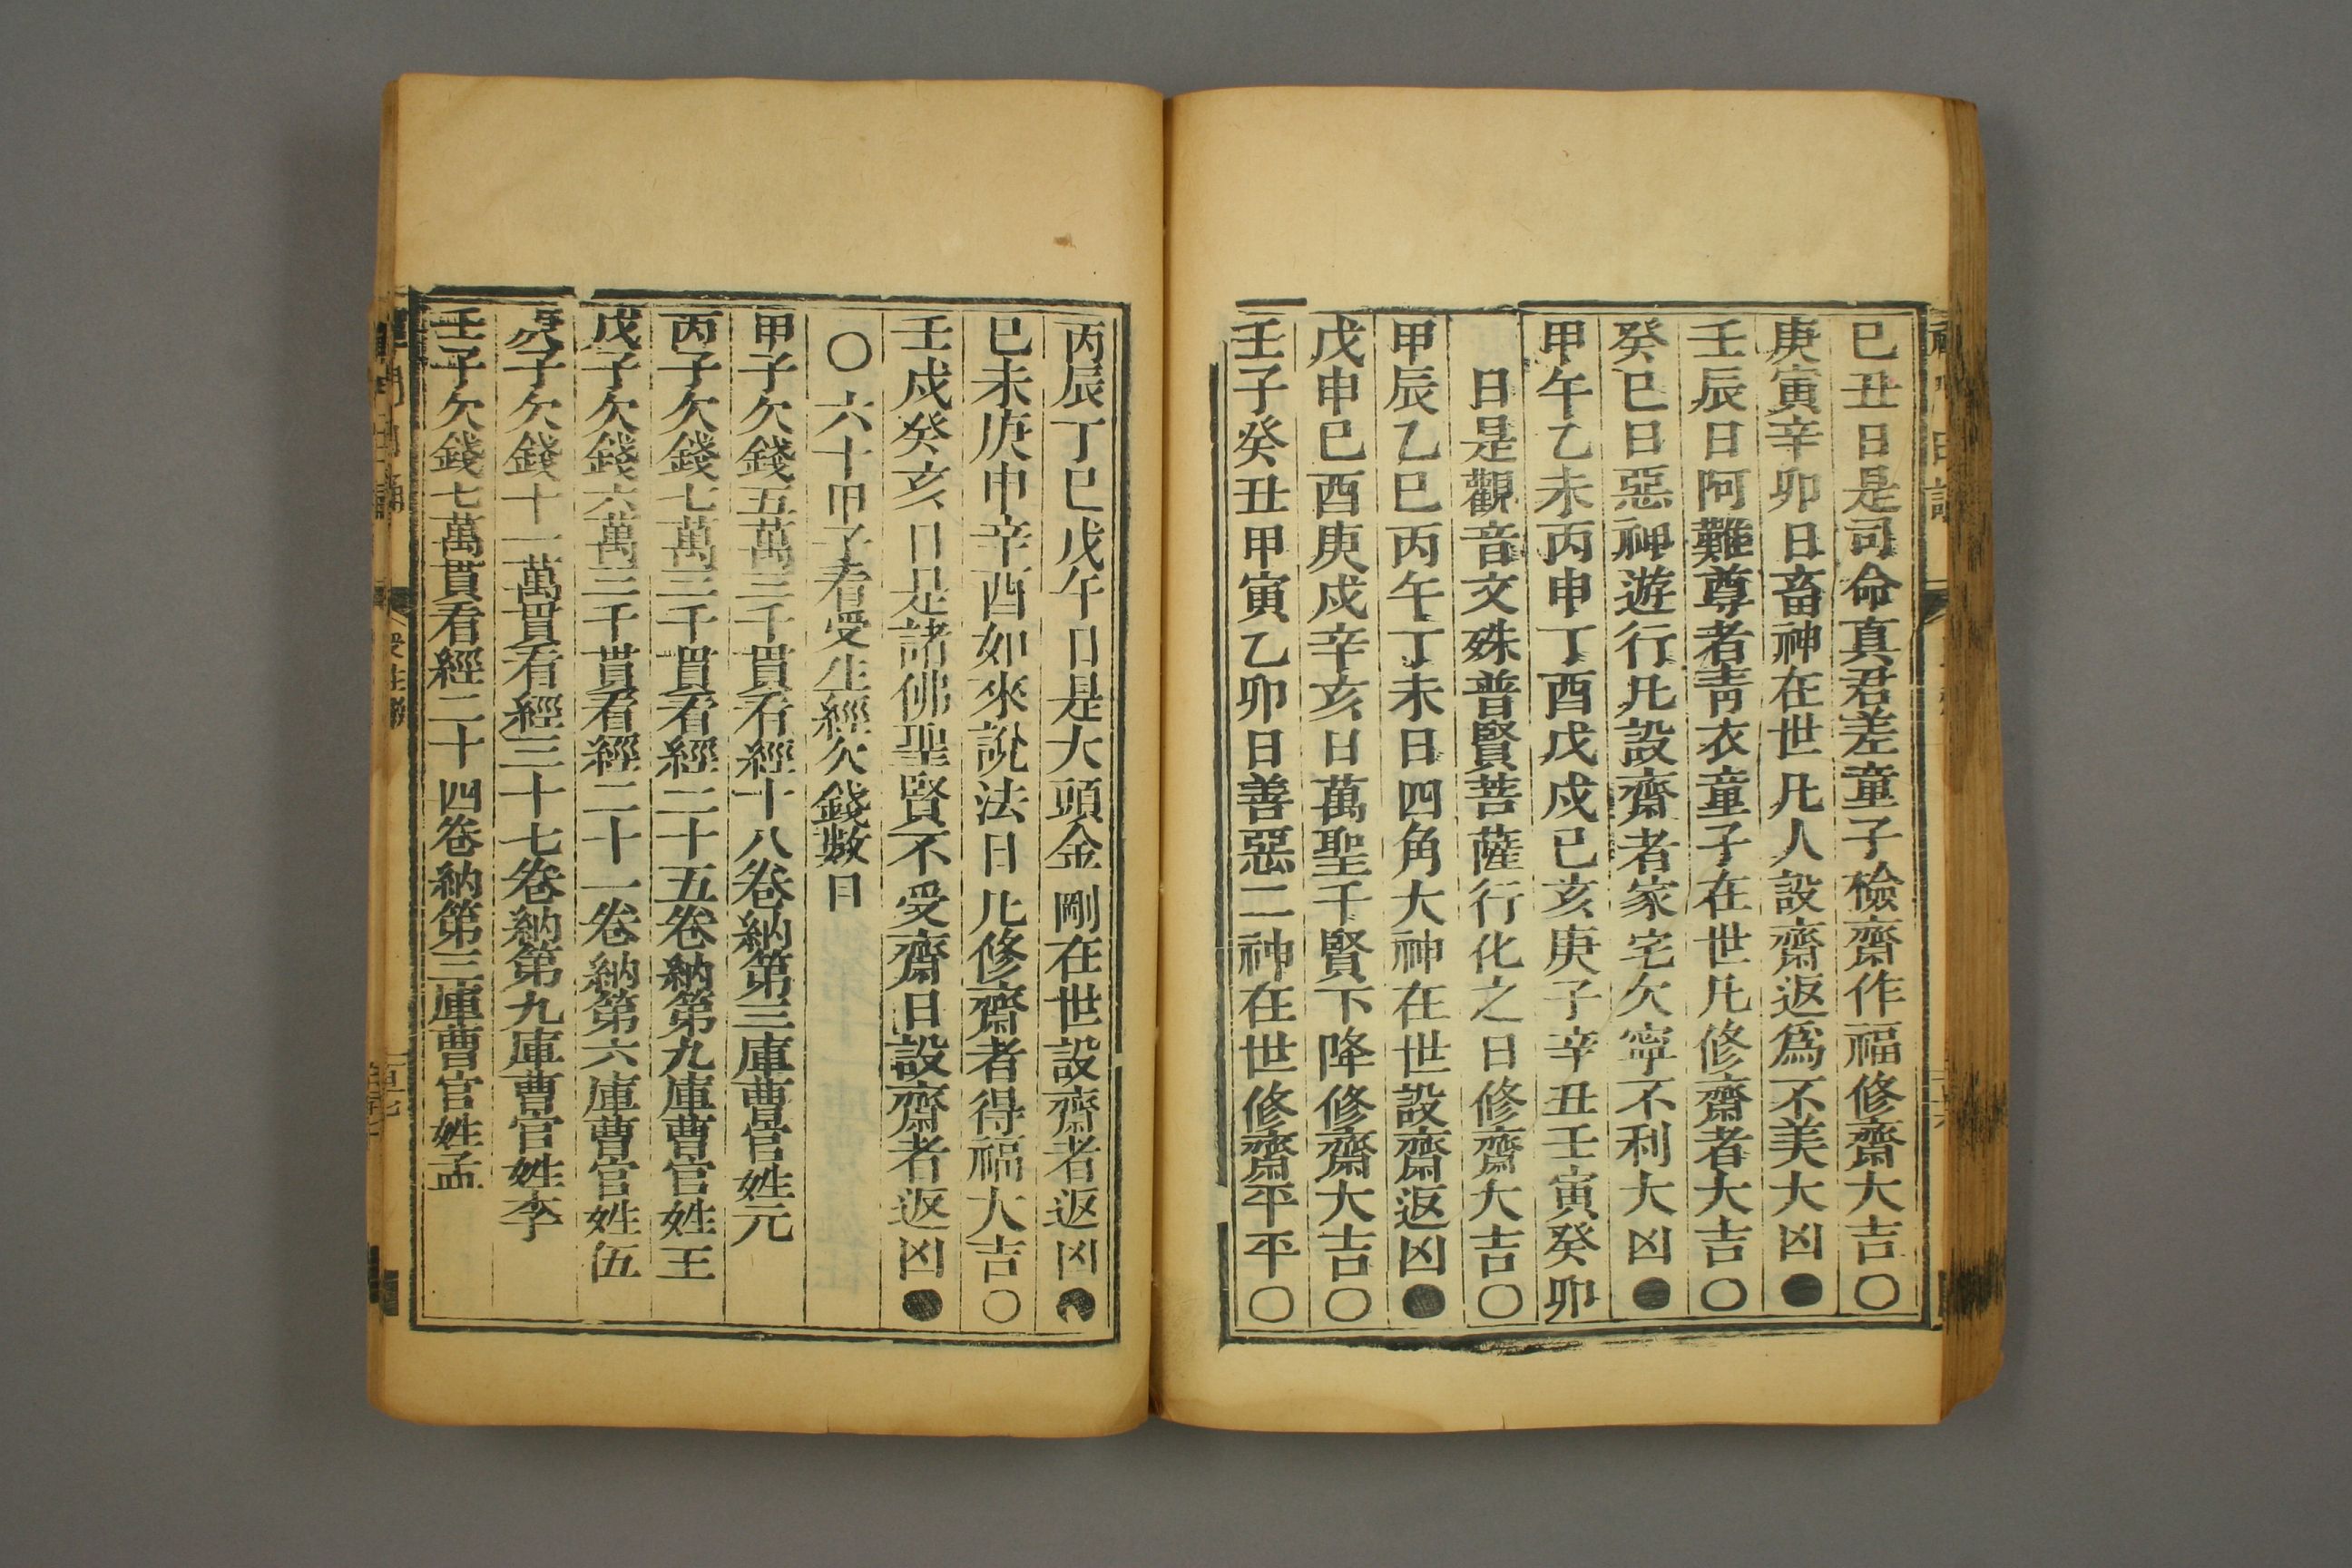 巳丑日是司命真君差童子檢齋作福修齋大吉〇
庚寅辛卯日畜神在世凡人設齋返爲不美大凶●
壬辰日阿難尊者靑衣童子在世凡修齋者大吉〇
癸巳日惡神遊行凡設齋者家宅欠寧不利大凶●
甲午乙未丙申丁酉戊戌已亥庚子辛丑壬寅癸卯
日是觀音文殊普賢菩薩行化之日修齋大吉〇
甲辰乙巳丙午丁未日四角大神在世設齋返凶●
戊申巳酉庚戌辛亥日萬聖千賢下降修齋大吉〇
壬子癸丑甲寅乙卯日善惡二神在世修齋平平〇
丙辰丁巳戊午日是大頭金剛在世設齋者返凶●
巳未庚申辛酉如來說法日凡修齋者得福大吉〇
壬戌癸亥日是諸佛聖賢不受齋日設齋者返凶●
〇六十甲子看受生經欠錢數目
甲子欠錢五萬三千貫看經十八卷納第三庫曹官姓元
丙子欠錢七萬三千貫看經二十五卷納第九庫曹官姓王
戊子欠錢六萬三千貫看經二十一卷納第六庫曹官姓伍
庚子欠錢十一萬貫看經三十七卷納第九庫曹官姓李
壬子欠錢七萬貫看經二十四卷納第三庫曹官姓孟